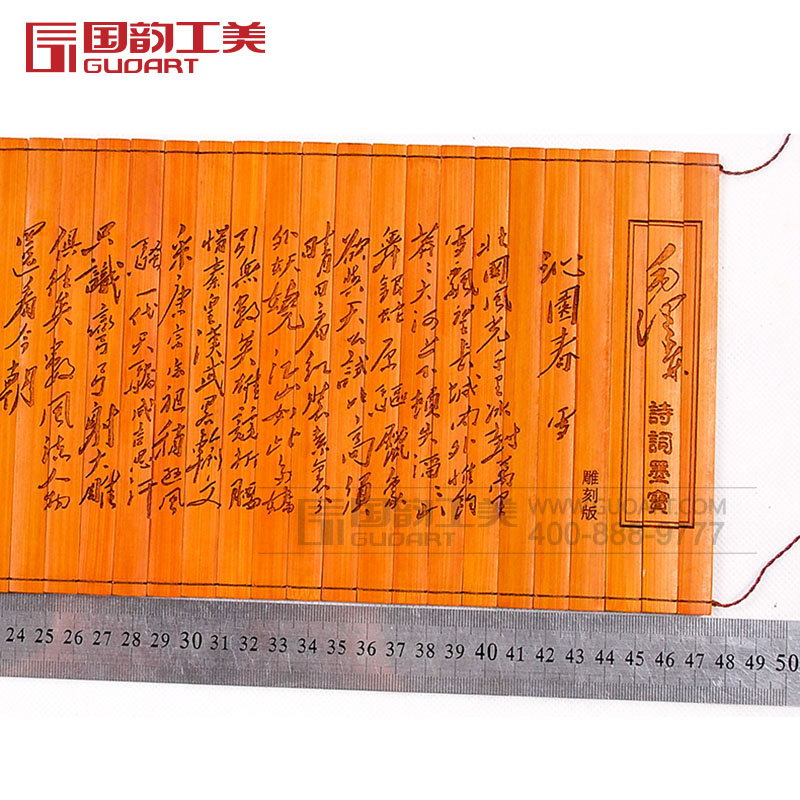 国韵工美
GUOART
毛澤東
詩詞墨寶
雕刻版
沁園春 雪
北國風光千里冰封萬里
雪飄望长城内外惟餘
莽々大河上下頓失滔々山
舞銀蛇原驅臘象
欲與天公試比高須
晴日看红装素裹分
外妖嬈江山如此多嬌
引無數英雄競折腰
惜秦皇漢武畧輸文
采唐宗宋祖稍遜風
騷一代天驕成吉思汗
只識彎弓射大雕
俱往矣數風流人物
還看今朝
国韵工美
GUOART
WWW.GUOART.COM
400-888-9777
24 25 26 27 28 29 30 31 32 33 34 35 36 37 38 39 40 41 42 43 44 45 46 47 48 49 50